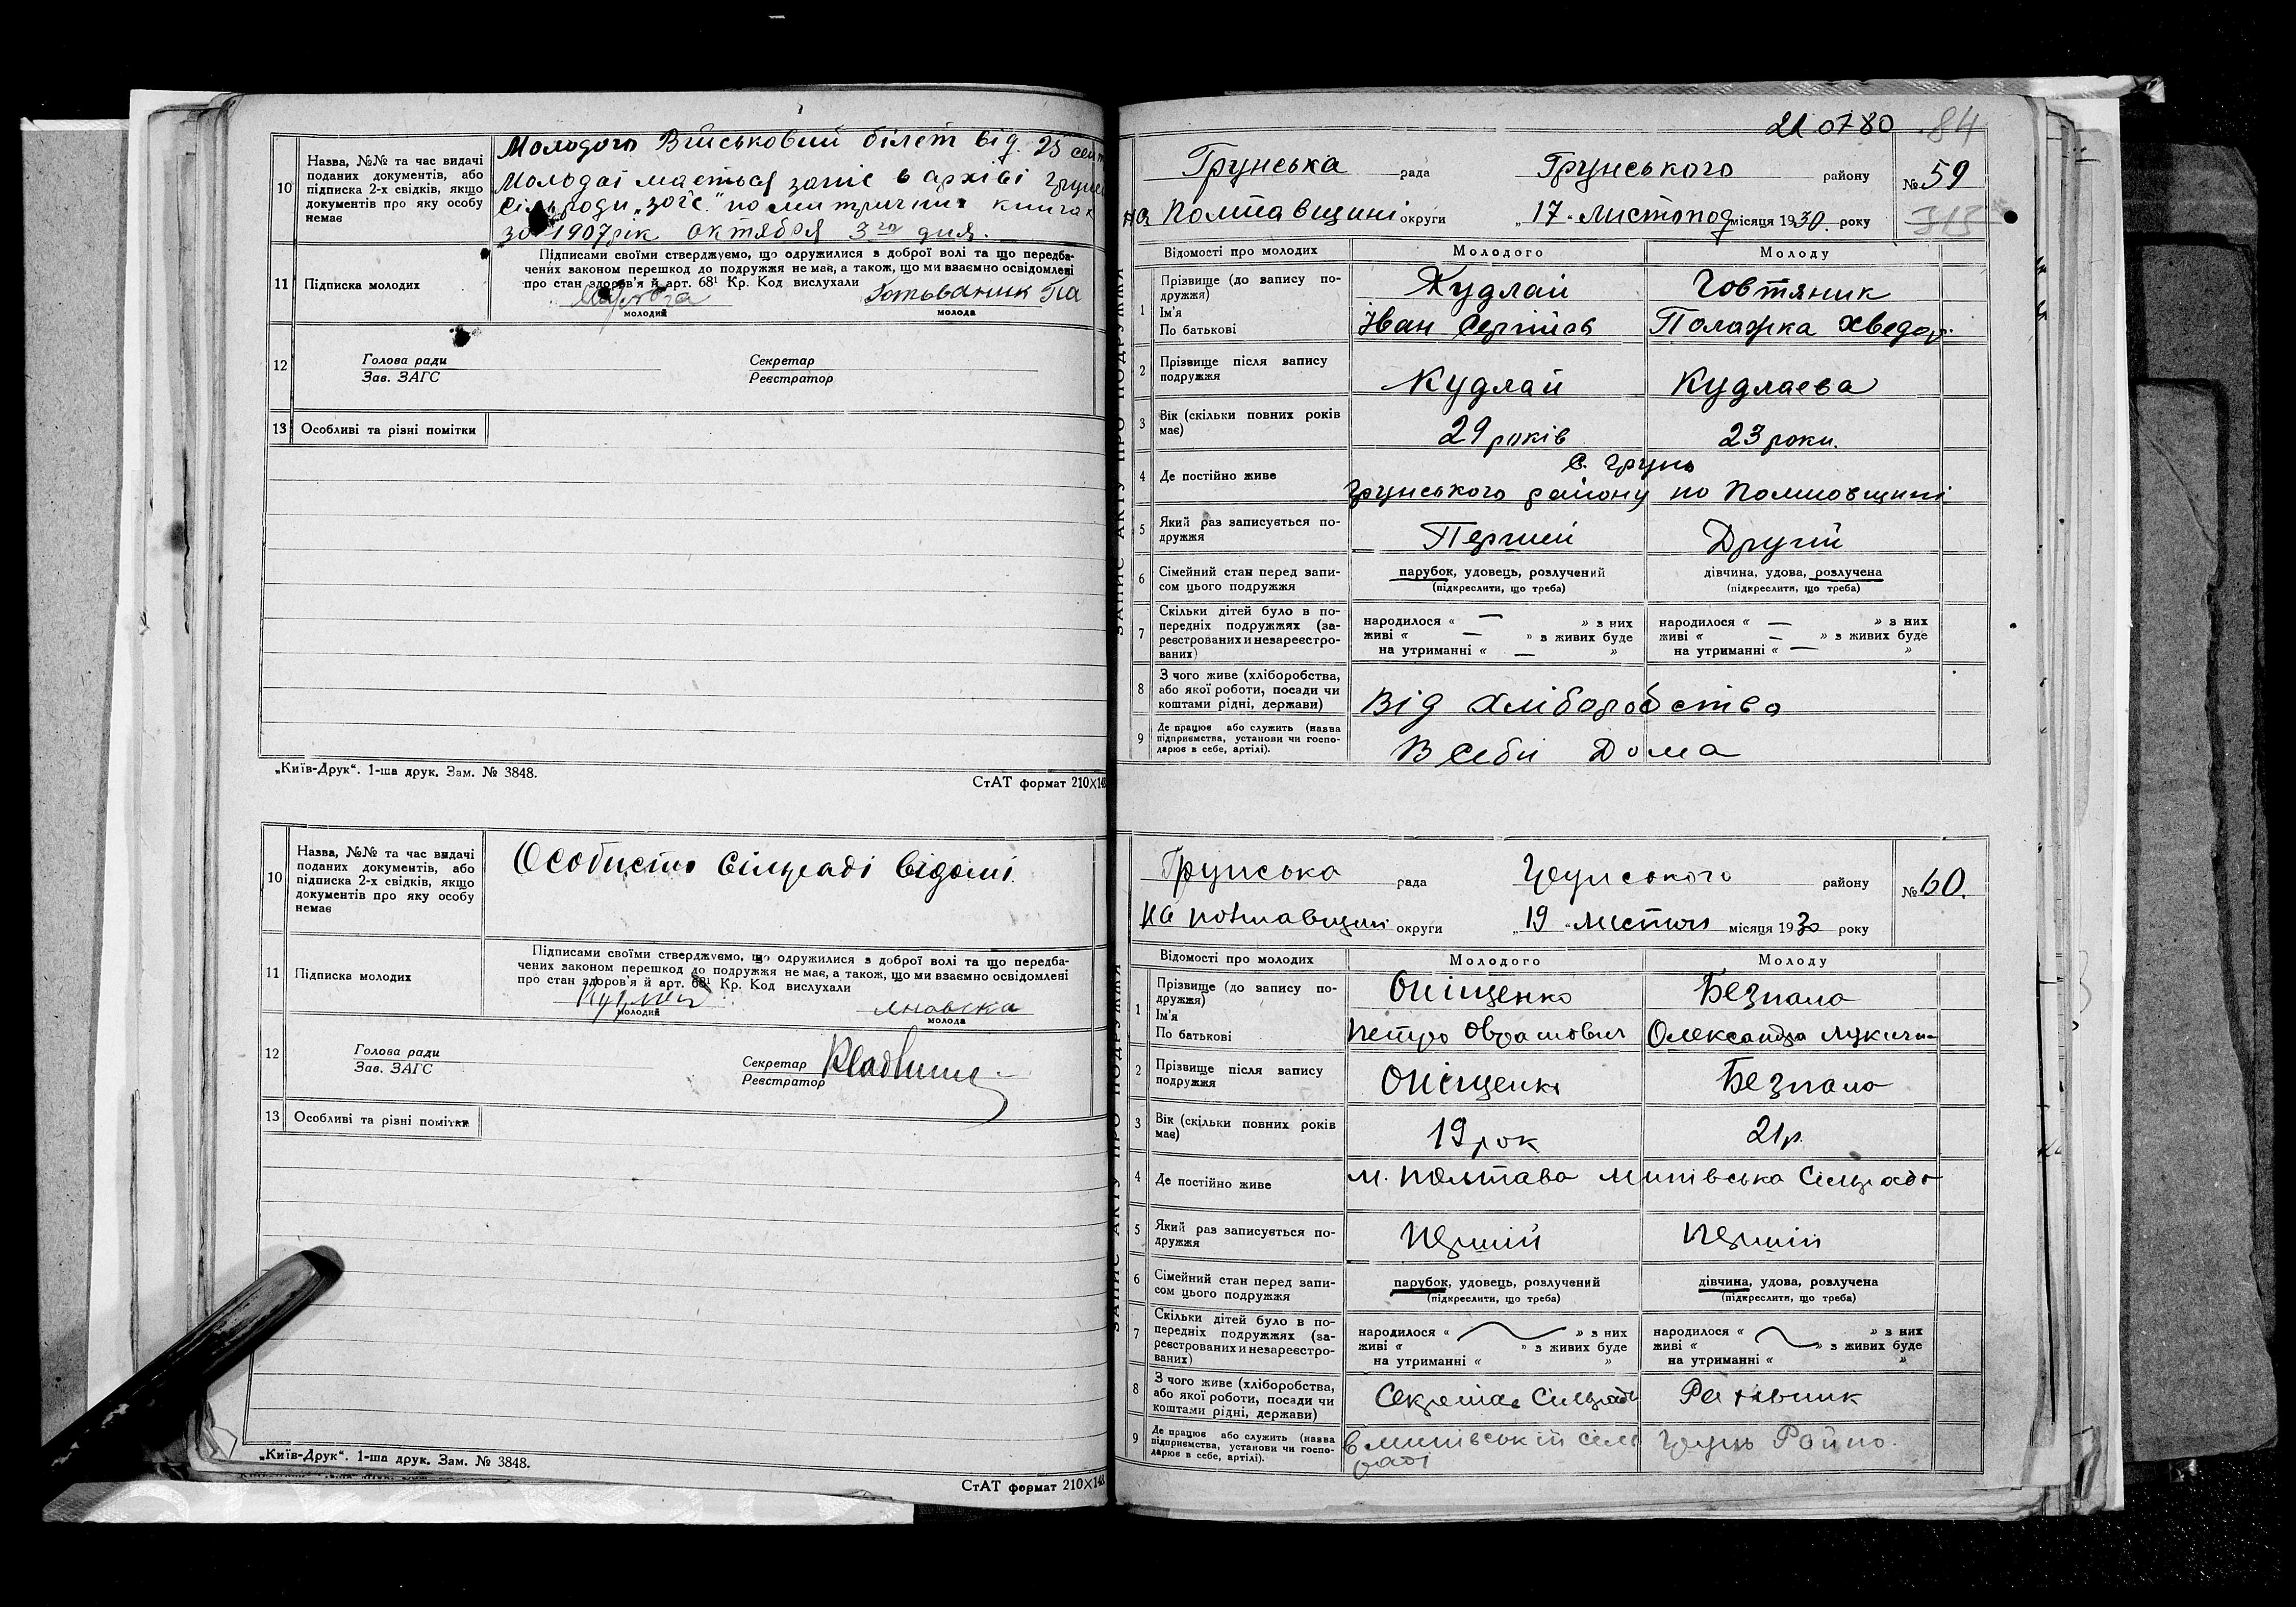 10 Назва, №№ та час видачі поданих документів, або підписка 2-х свідків, якщо документів про яку особу немає
Молодого Військовий білет від. 25 сент
Молодої мається запіс в архіві Грунс
Сільради „загс." по митричних книгах
за 1907 рік октября 3го дня.
11 Підписка молодих
Підписами своїми стверджуємо, що одружилися з доброї волі та що передба-
чених законом перешкод до подружжя не має, а також, що ми взаємно освідомлені
про стан здоров'я й арт. 68¹ Кр. Код вислухали
молодий
молода
12 Голова ради
Зав. ЗАГС
Секретар
Реєстратор
13 Особливі та різні помітки
„Київ-Друк". 1-ша друк. Зам. № 3848.
СтАТ формат 210×148
10 Назва, №№ та час видачі поданих документів, або підписка 2-х свідків, якщо документів про яку особу немає
Особисто Сільраді відомі.
11 Підписка молодих
Підписами своїми стверджуємо, що одружилися з доброї волі та що передба-
чених законом перешкод до подружжя не має, а також, що ми взаємно освідомлені
про стан здоров'я й арт. 68¹ Кр. Код вислухали
молодий
молода
12 Голова ради
Зав. ЗАГС
Секретар
Реєстратор
13 Особливі та різні помітки
„Київ-Друк". 1-ша друк. Зам. № 3848.
СтАТ формат 210×148
210780 84
ЗАПИС АКТУ ПРО ПОДРУЖЖЯ
Грунська рада Грунського району № 59
на Полтавщині округи „17" листопад місяця 1930. року 313
Відомості про молодих Молодого Молоду
1 Прізвище (до запису подружжя) Кудлай Говтяник
Ім'я
По батькові Іван Сергійов Полажка Хведор.
2 Прізвище після запису подружжя Кудлай Кудлаєва
3 Вік (скільки повних років має) 29 років 23 роки.
4 Де постійно живе с. Грунь
Грунського району на Полтавщині
5 Який раз записується подружжя Перший Другий
6 Сімейний стан перед записом цього подружжя парубок, удовець, розлучений дівчина, удова, розлучена
(підкреслити, що треба) (підкреслити, що треба)
7 Скільки дітей було в попередніх подружжях (зареєстрованих и незареєстрованих)
народилося « — » з них народилося « — » з них
живі « — » з живих буде живі « — » з живих буде
на утриманні « — » на утриманні « — »
8 З чого живе (хліборобства, або якої роботи, посади чи коштами рідні, держави) Від хліборобства
9 Де працює або служить (назва підприємства, установи чи господарює в себе, артілі). В себи Дома
ЗАПИС АКТУ ПРО ПОДРУЖЖЯ
Грунська рада Грунського району № 60.
на полтавщині округи „19" листоп місяця 1930 року
Відомості про молодих Молодого Молоду
1 Прізвище (до запису подружжя) Оніщенко Безпала
Ім'я
По батькові Петро Оврамович Олександра
2 Прізвище після запису подружжя Оніщенко Безпала
3 Вік (скільки повних років має) 19 рок 21 р.
4 Де постійно живе м. Полтава Сільрада
5 Який раз записується подружжя перший перший
6 Сімейний стан перед записом цього подружжя парубок, удовець, розлучений дівчина, удова, розлучена
(підкреслити, що треба) (підкреслити, що треба)
7 Скільки дітей було в попередніх подружжях (зареєстрованих и незареєстрованих)
народилося « » з них народилося « » з них
живі « » з живих буде живі « » з живих буде
на утриманні « » на утриманні « »
8 З чого живе (хліборобства, або якої роботи, посади чи коштами рідні, держави) Секретар Сільради
9 Де працює або служить (назва підприємства, установи чи господарює в себе, артілі). Грунь